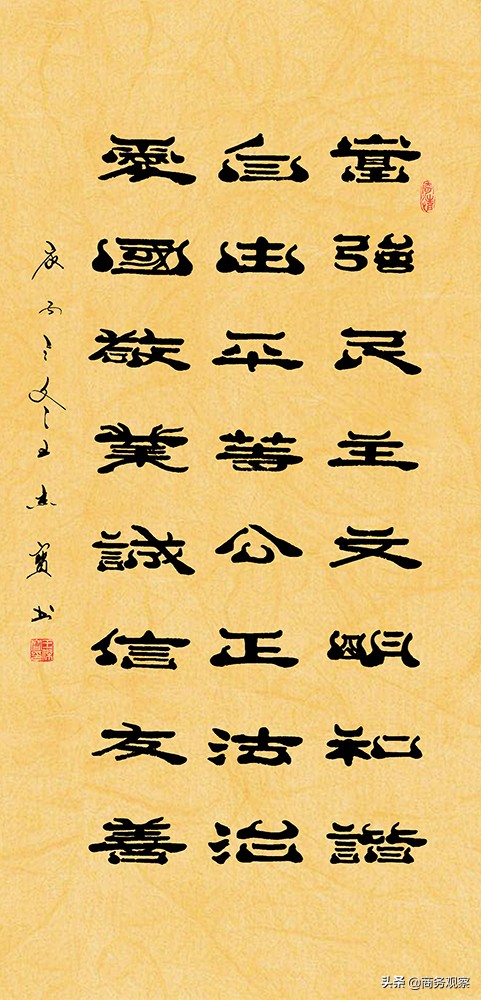 富強民主文明和諧
自由平等公正法治
愛國敬業誠信友善
庚子之冬王杰寶书
头条 @商务观察